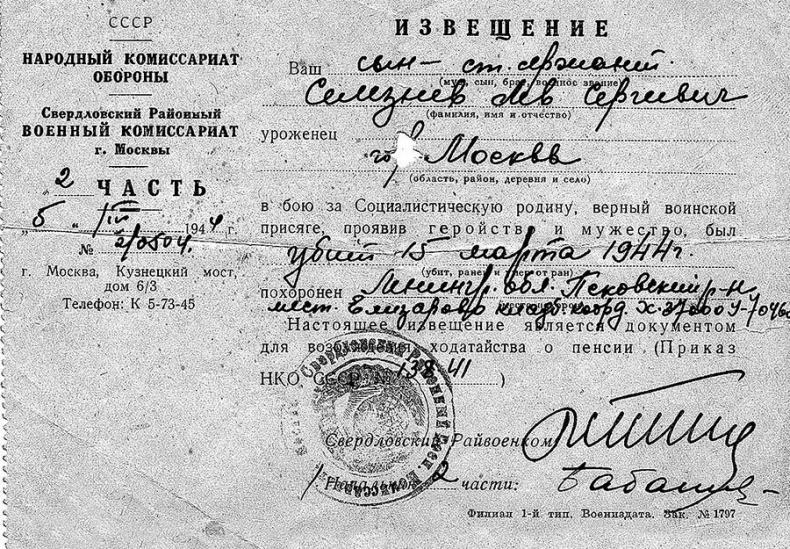 СССР
НАРОДНЫЙ КОМИССАРИАТ
ОБОРОНЫ
Свердловский Районный
ВОЕННЫЙ КОМИССАРИАТ
г. Москвы
"2" ЧАСТЬ
"5" IV 1944 г.
№ 2/0504.
г. Москва, Кузнецкий мост,
дом 6/3
Телефон: К 5-73-45
ИЗВЕЩЕНИЕ
Ваш сын - ст. сержант
(муж, сын, брат, военное звание)
Селезнев Лев Сергеевич
(фамилия, имя и отчество)
уроженец
гор. Москва
(область, район, деревня и село)
в бою за Социалистическую родину, верный воинской
присяге, проявив геройство и мужество, был
убит 15 марта 1944 г.
(убит, ранен и умер от ран)
похоронен Ленингр. обл. Псковский р-н
мест. Елизарово коорд. Х-
Настоящее извещение является документом
для возбуждения ходатайства о пенсии (Приказ
НКО СССР № 138-41)
Свердловский Райвоенком
Начальник 2 части:
Филиал 1-й тип. Воениздата. Зак. № 1797